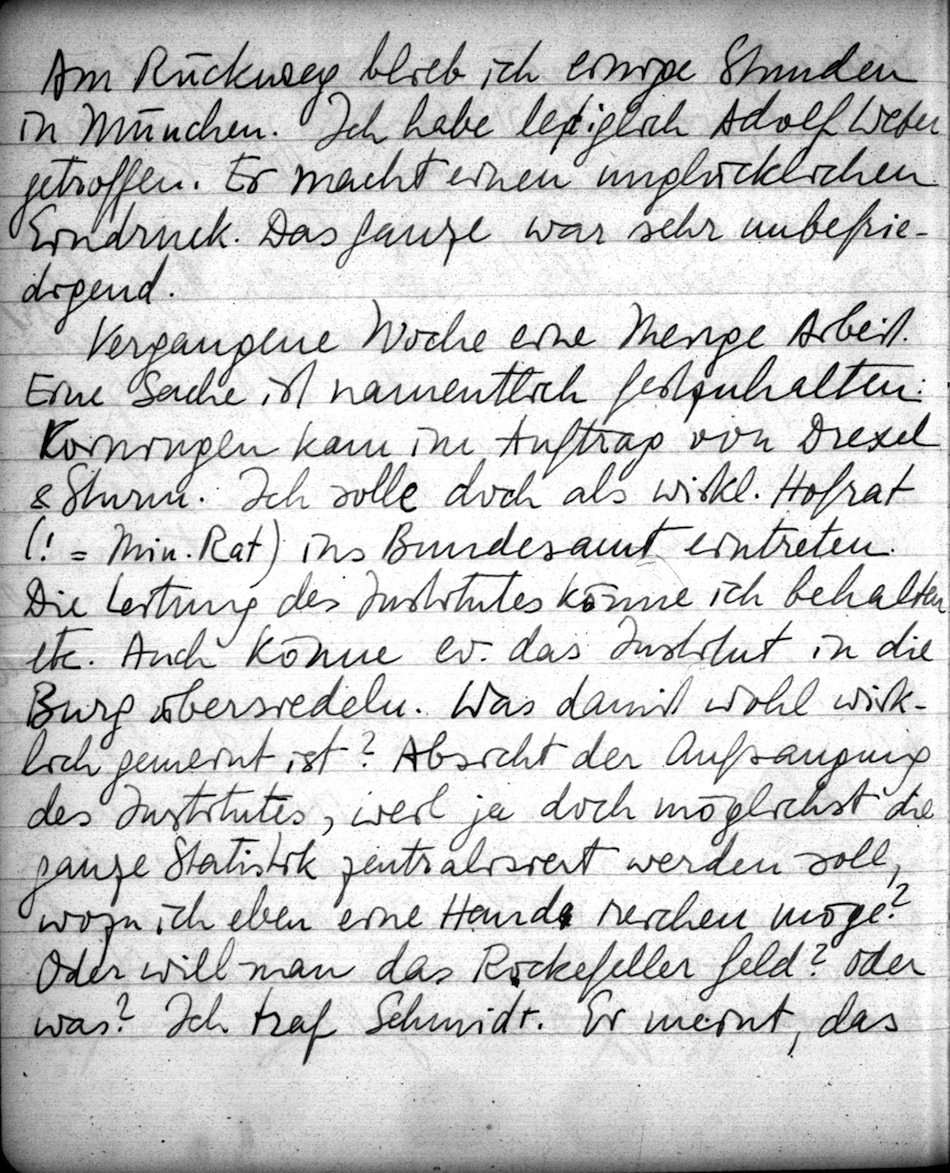 Am Rückweg blieb ich einige Stunden
in München. Ich habe lediglich Adolf Weber
getroffen. Er macht einen unglücklichen
Eindruck. Das ganze war sehr unbefrie-
digend.
Vergangene Woche eine Menge Arbeit.
Eine Sache ist namentlich festzuhalten:
kam im Auftrag von Drexel
& Sturm. Ich solle doch als wirkl. Hofrat
(! = Min. Rat) ins Bundesamt eintreten.
Die Leitung des Institutes könne ich behalten
etc. Auch könne ev. das Institut in die
Burg übersiedeln. Was damit wohl wirk-
lich gemeint ist? Absicht der Aufsaugung
des Institutes, weil ja doch möglichst die
ganze Statistik zentralisiert werden soll,
wozu ich eben eine Hand reichen möge?
Oder will man das Rockefeller Geld? oder
was? Ich traf Schmidt. Er meint, das